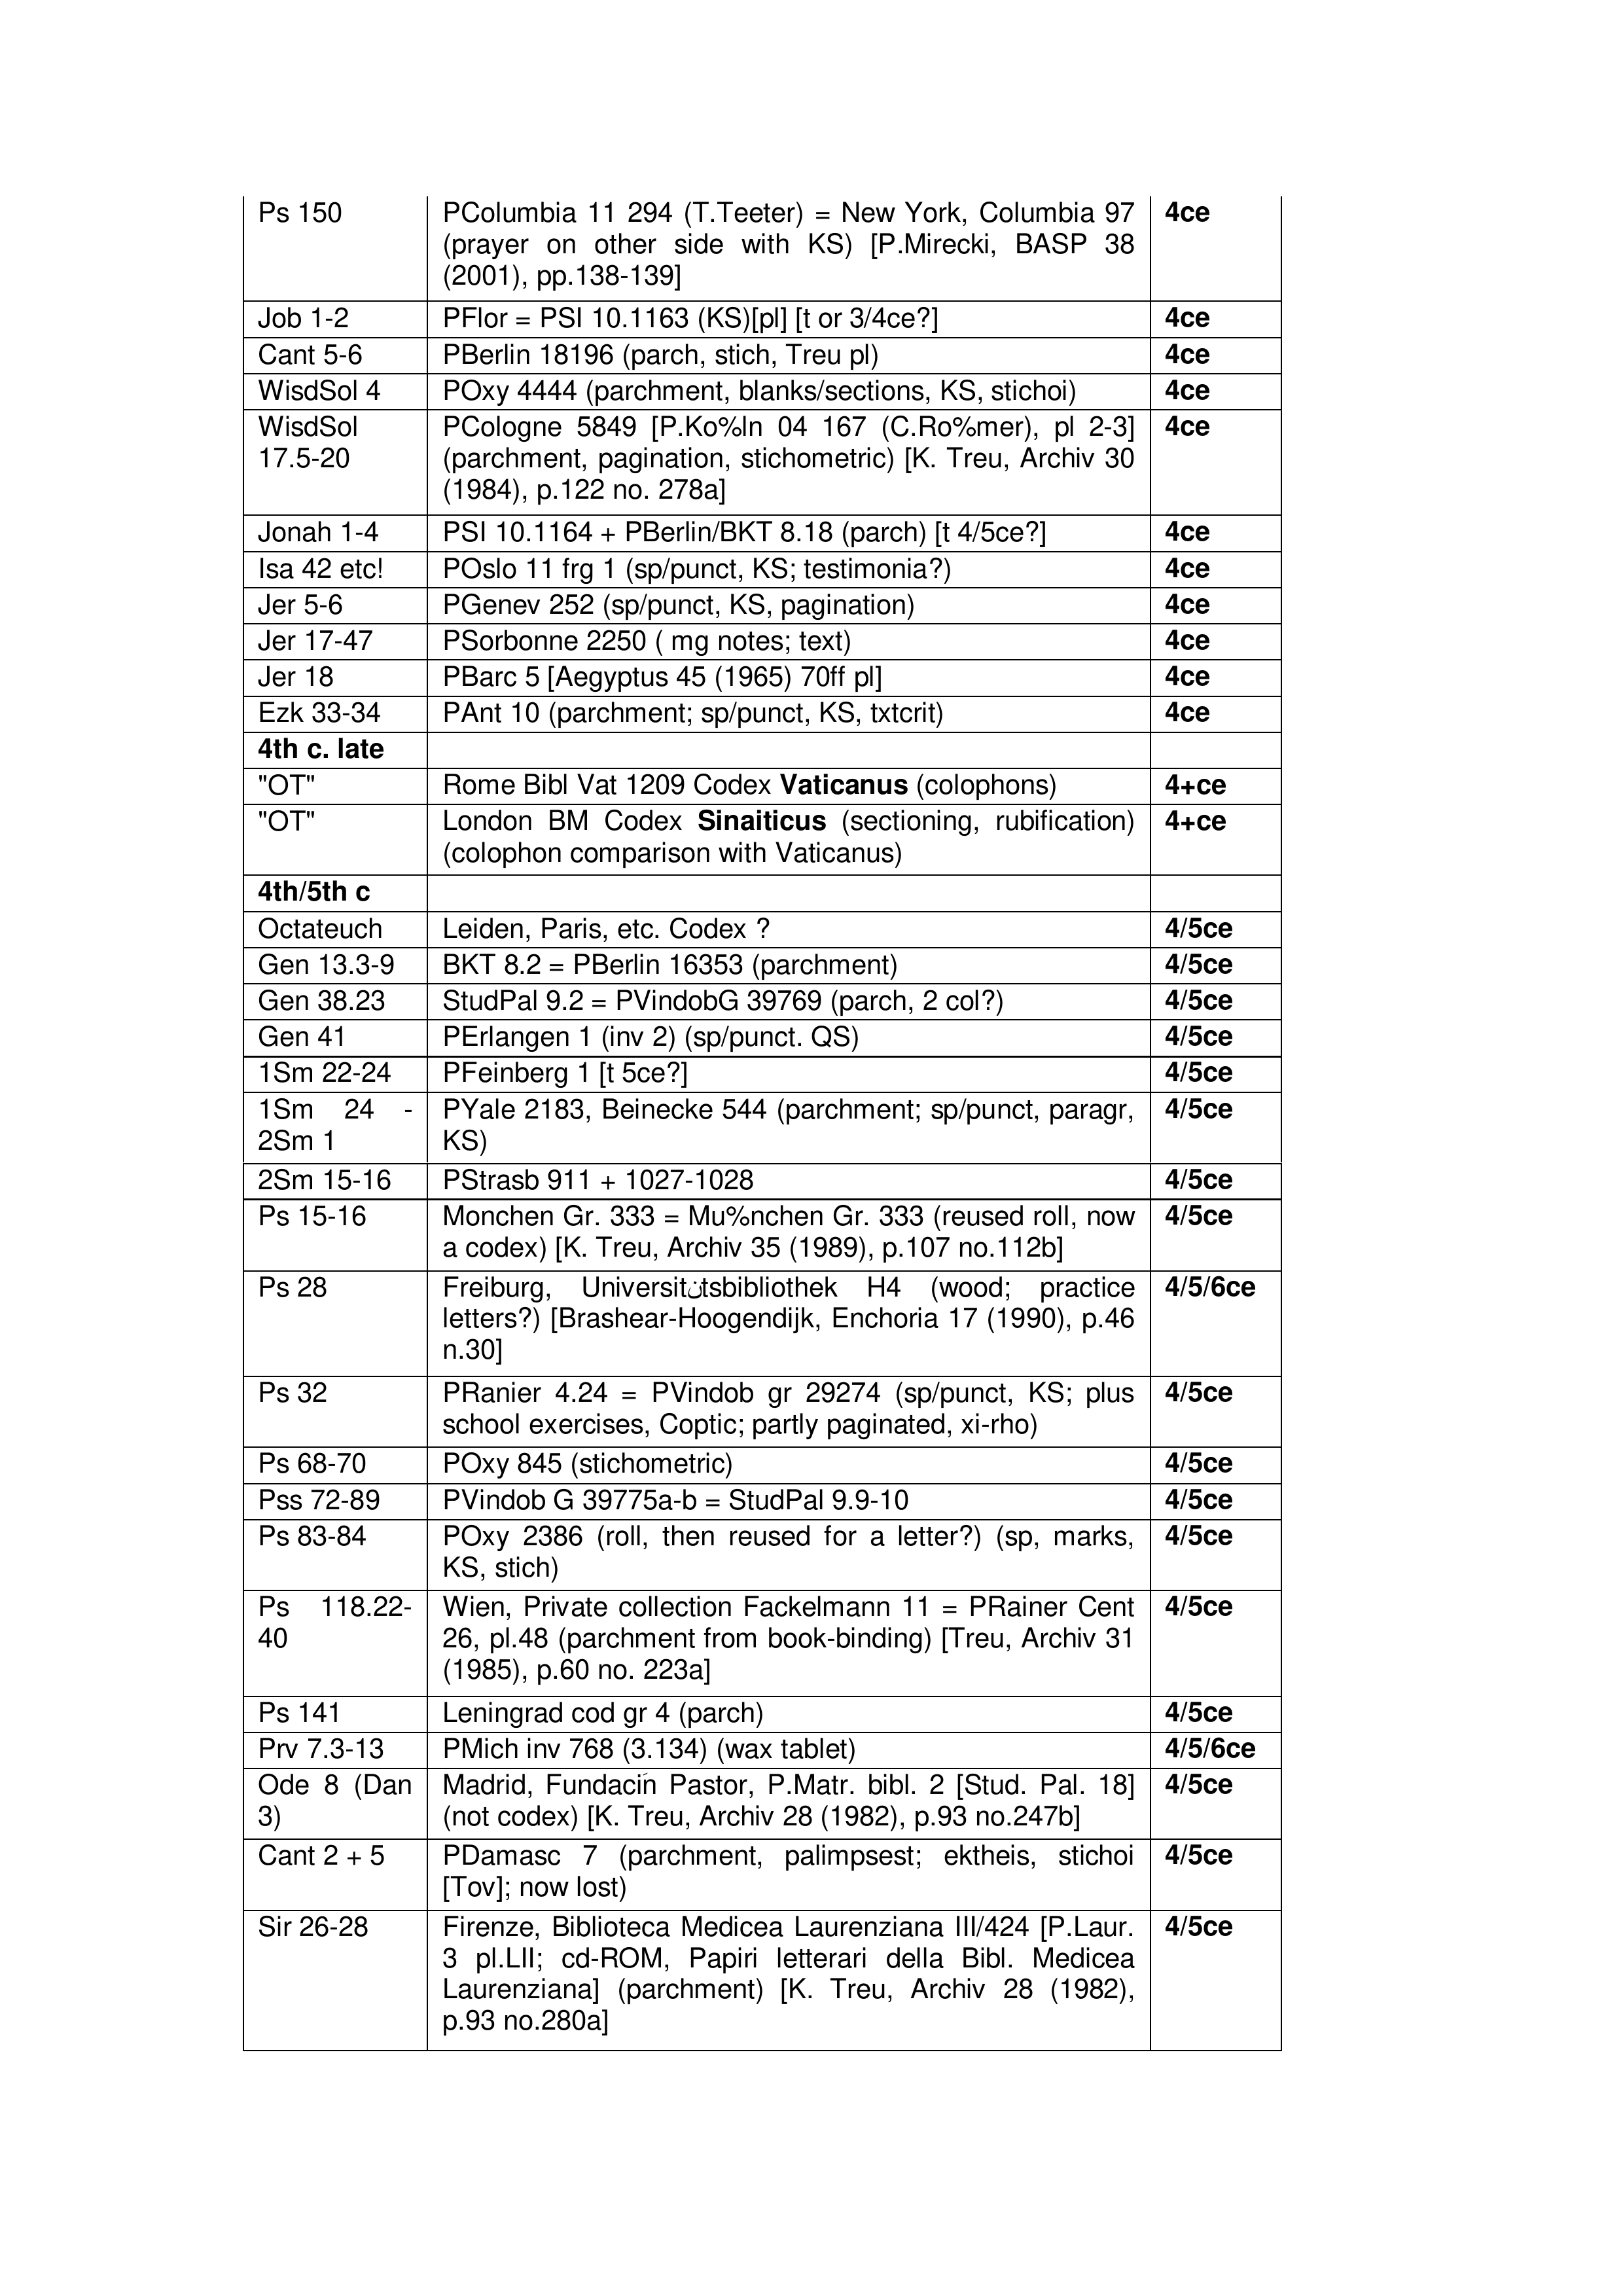 Ps 150 PColumbia 11 294 (T.Teeter) = New York, Columbia 97 4ce
(prayer on other side with KS) [P.Mirecki, BASP 38
(2001), pp.138-139]
Job 1-2 PFlor = PSI 10.1163 (KS)[pl] [t or 3/4ce?] 4ce
Cant 5-6 PBerlin 18196 (parch, stich, Treu pl) 4ce
WisdSol 4 POxy 4444 (parchment, blanks/sections, KS, stichoi) 4ce
WisdSol PCologne 5849 [P.Ko%ln 04 167 (C.Ro%mer), pl 2-3] 4ce
17.5-20 (parchment, pagination, stichometric) [K. Treu, Archiv 30
(1984), p.122 no. 278a]
Jonah 1-4 PSI 10.1164 + PBerlin/BKT 8.18 (parch) [t 4/5ce?] 4ce
Isa 42 etc! POslo 11 frg 1 (sp/punct, KS; testimonia?) 4ce
Jer 5-6 PGenev 252 (sp/punct, KS, pagination) 4ce
Jer 17-47 PSorbonne 2250 ( mg notes; text) 4ce
Jer 18 PBarc 5 [Aegyptus 45 (1965) 70ff pl] 4ce
Ezk 33-34 PAnt 10 (parchment; sp/punct, KS, txtcrit) 4ce
4th c. late
"OT" Rome Bibl Vat 1209 Codex Vaticanus (colophons) 4+ce
"OT" London BM Codex Sinaiticus (sectioning, rubification) 4+ce
(colophon comparison with Vaticanus)
4th/5th c
Octateuch Leiden, Paris, etc. Codex ? 4/5ce
Gen 13.3-9 BKT 8.2 = PBerlin 16353 (parchment) 4/5ce
Gen 38.23 StudPal 9.2 = PVindobG 39769 (parch, 2 col?) 4/5ce
Gen 41 PErlangen 1 (inv 2) (sp/punct. QS) 4/5ce
1Sm 22-24 PFeinberg 1 [t 5ce?] 4/5ce
1Sm 24 - PYale 2183, Beinecke 544 (parchment; sp/punct, paragr, 4/5ce
2Sm 1 KS)
2Sm 15-16 PStrasb 911 + 1027-1028 4/5ce
Ps 15-16 Monchen Gr. 333 = Mu%nchen Gr. 333 (reused roll, now 4/5ce
a codex) [K. Treu, Archiv 35 (1989), p.107 no.112b]
Ps 28 Freiburg, Universitنtsbibliothek H4 (wood; practice 4/5/6ce
letters?) [Brashear-Hoogendijk, Enchoria 17 (1990), p.46
n.30]
Ps 32 PRanier 4.24 = PVindob gr 29274 (sp/punct, KS; plus 4/5ce
school exercises, Coptic; partly paginated, xi-rho)
Ps 68-70 POxy 845 (stichometric) 4/5ce
Pss 72-89 PVindob G 39775a-b = StudPal 9.9-10 4/5ce
Ps 83-84 POxy 2386 (roll, then reused for a letter?) (sp, marks, 4/5ce
KS, stich)
Ps 118.22- Wien, Private collection Fackelmann 11 = PRainer Cent 4/5ce
40 26, pl.48 (parchment from book-binding) [Treu, Archiv 31
(1985), p.60 no. 223a]
Ps 141 Leningrad cod gr 4 (parch) 4/5ce
Prv 7.3-13 PMich inv 768 (3.134) (wax tablet) 4/5/6ce
Ode 8 (Dan Madrid, Fundaciَn Pastor, P.Matr. bibl. 2 [Stud. Pal. 18] 4/5ce
3) (not codex) [K. Treu, Archiv 28 (1982), p.93 no.247b]
Cant 2 + 5 PDamasc 7 (parchment, palimpsest; ektheis, stichoi 4/5ce
[Tov]; now lost)
Sir 26-28 Firenze, Biblioteca Medicea Laurenziana III/424 [P.Laur. 4/5ce
3 pl.LII; cd-ROM, Papiri letterari della Bibl. Medicea
Laurenziana] (parchment) [K. Treu, Archiv 28 (1982),
p.93 no.280a]